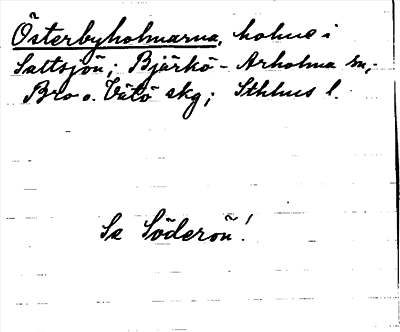 Österbyholmarna, holme i
Saltsjön; Björkö - Arholma sn,
Bro o. Vätö skg; Sthlms l.
Se Söderön!